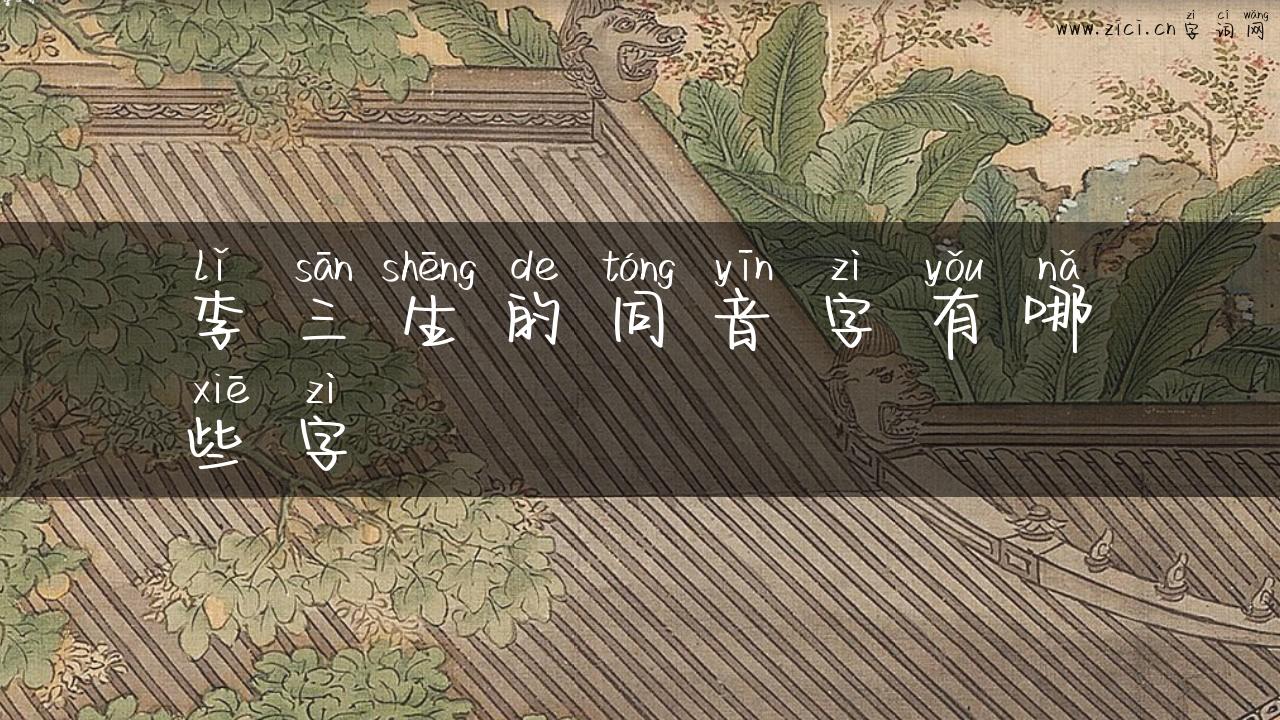 zì cí wǎng
www.zici.cn 字 词 网
lǐ sān shēng de tóng yīn zì yǒu nǎ
李 三 生 的 同 音 字 有 哪
xiē zì
些 字